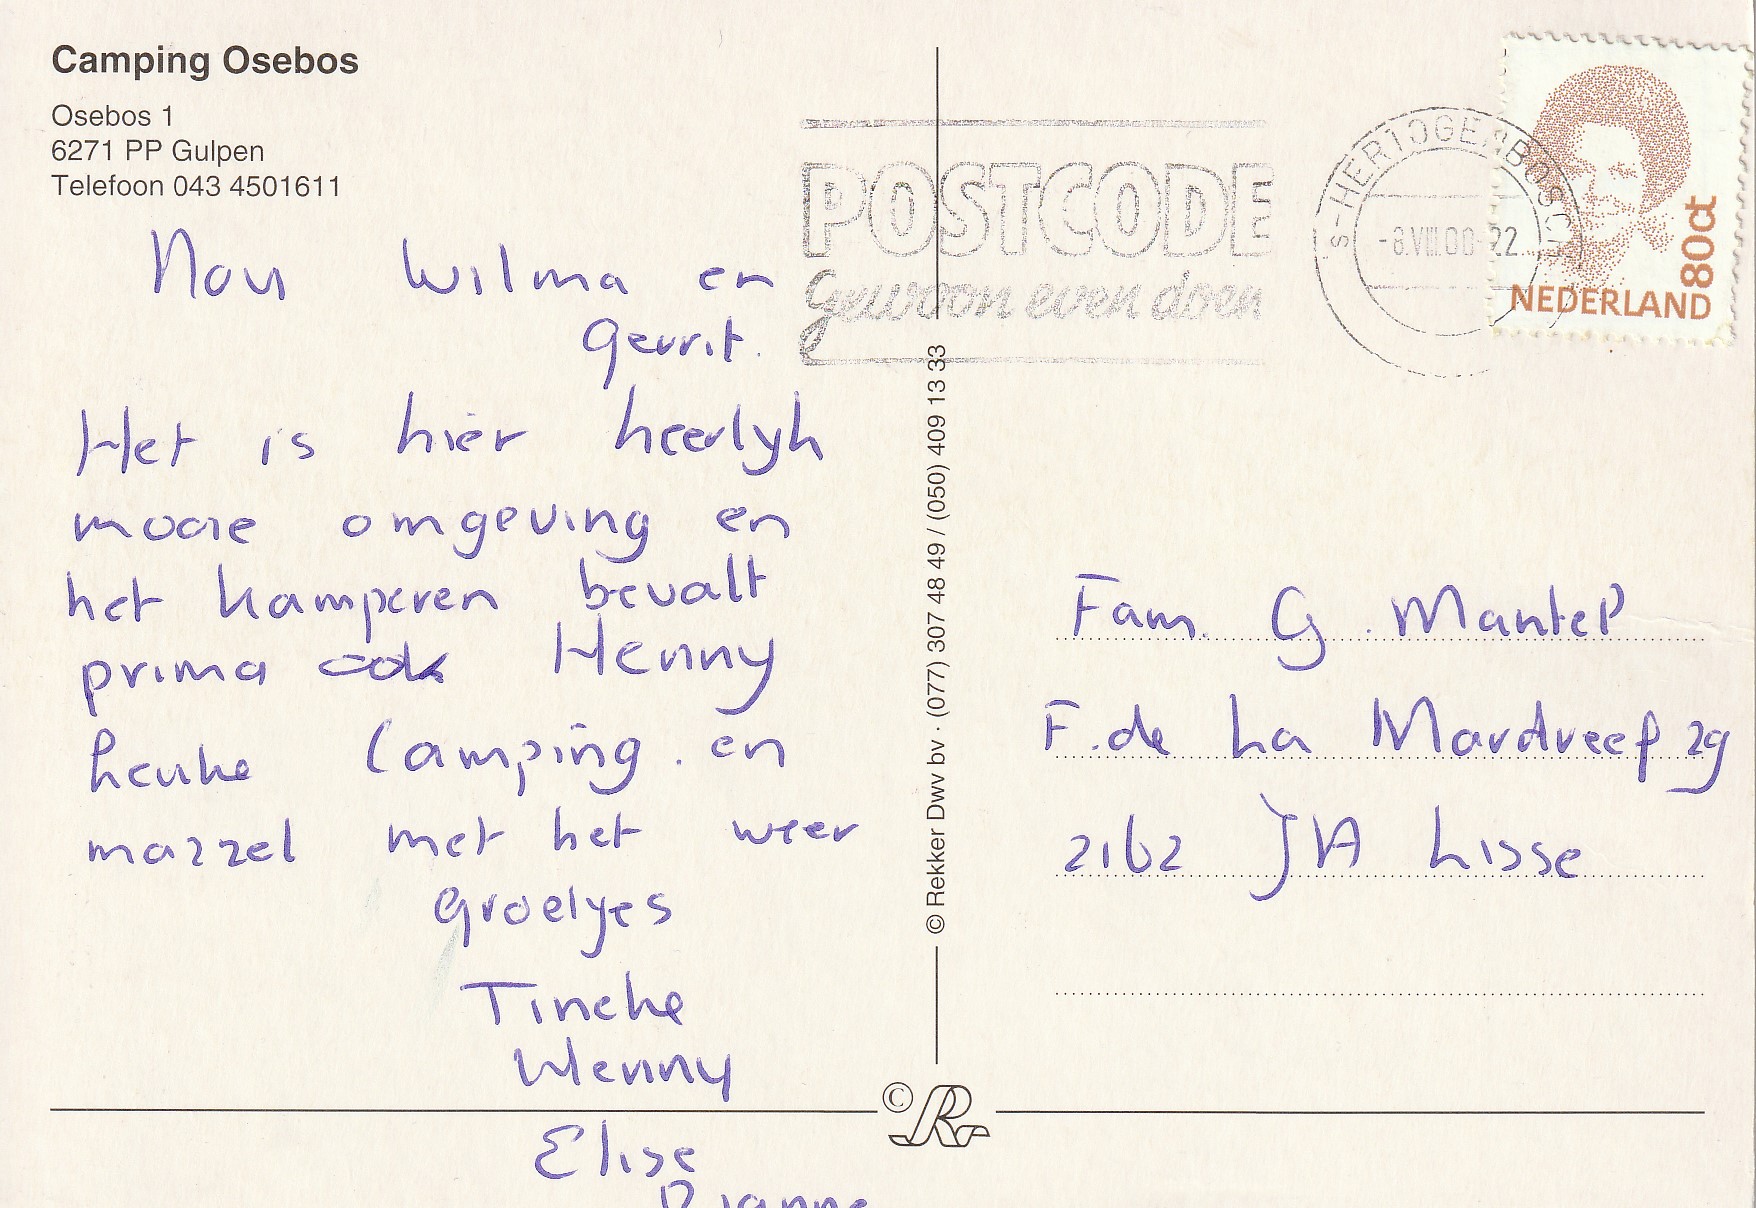 Camping Osebos
Osebos 1
6271 PP Gulpen
Telefoon 043 4501611
POSTCODE
gewoon even doen
S-HERTOGENBOSCH
-8.VIII.00-22
80ct
NEDERLAND
Nou Wilma en
Gerrit.
Het is hier heerlyk
mooie omgeving en
het kamperen bevalt
prima ook Henny
leuke Camping. en
mazzel met het weer
Groetjes
Tineke
Henny
Elise
Dianne
© Rekker Dwv bv · (077) 307 48 49 / (050) 409 13 33
Fam. G. Mantel
F. de La Mardreef 29
2162 JA Lisse
© R